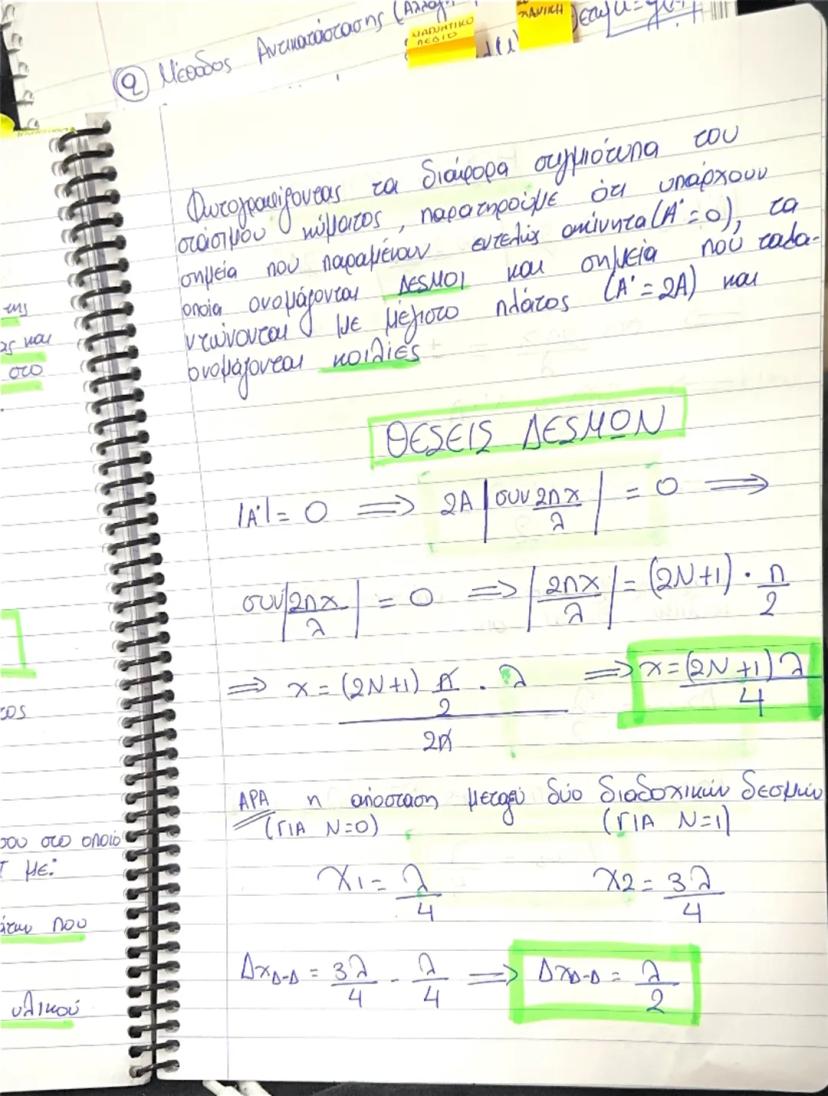 ② Μέθοδος Αντικατάστασης (Αλλαγ
ΜΑΓΝΗΤΙΚΟ
ΠΕΔΙΟ
Φωτογραφίζοντας τα διάφορα στιγμιότυπα του
στάσιμου κύματος, παρατηρούμε ότι υπάρχουν
σημεία που παραμένουν εντελώς ακίνητα (Α'=0), τα
οποία ονομάζονται ΔΕΣΜΟΙ και σημεία που ταλα-
ντώνονται με μέγιστο πλάτος (Α'=2Α) και
ονομάζονται κοιλίες
ΘΕΣΕΙΣ ΔΕΣΜΩΝ
|Α'| = 0 ⟹ 2Α |συν 2πx/λ| = 0 ⟹
συν|2πx/λ| = 0 ⟹ |2πx/λ| = (2Ν+1) · π/2
⟹ x = (2Ν+1) π/2 · λ / 2π ⟹ x = (2Ν+1)λ/4
ΑΡΑ η απόσταση μεταξύ δύο διαδοχικών δεσμών
(ΓΙΑ Ν=0) (ΓΙΑ Ν=1)
x1 = λ/4 x2 = 3λ/4
ΔxΔ-Δ = 3λ/4 - λ/4 ⟹ ΔxΔ-Δ = λ/2
της
ας και
στο
τος
σου στο οποίο
Τ με:
άτων που
υλικού